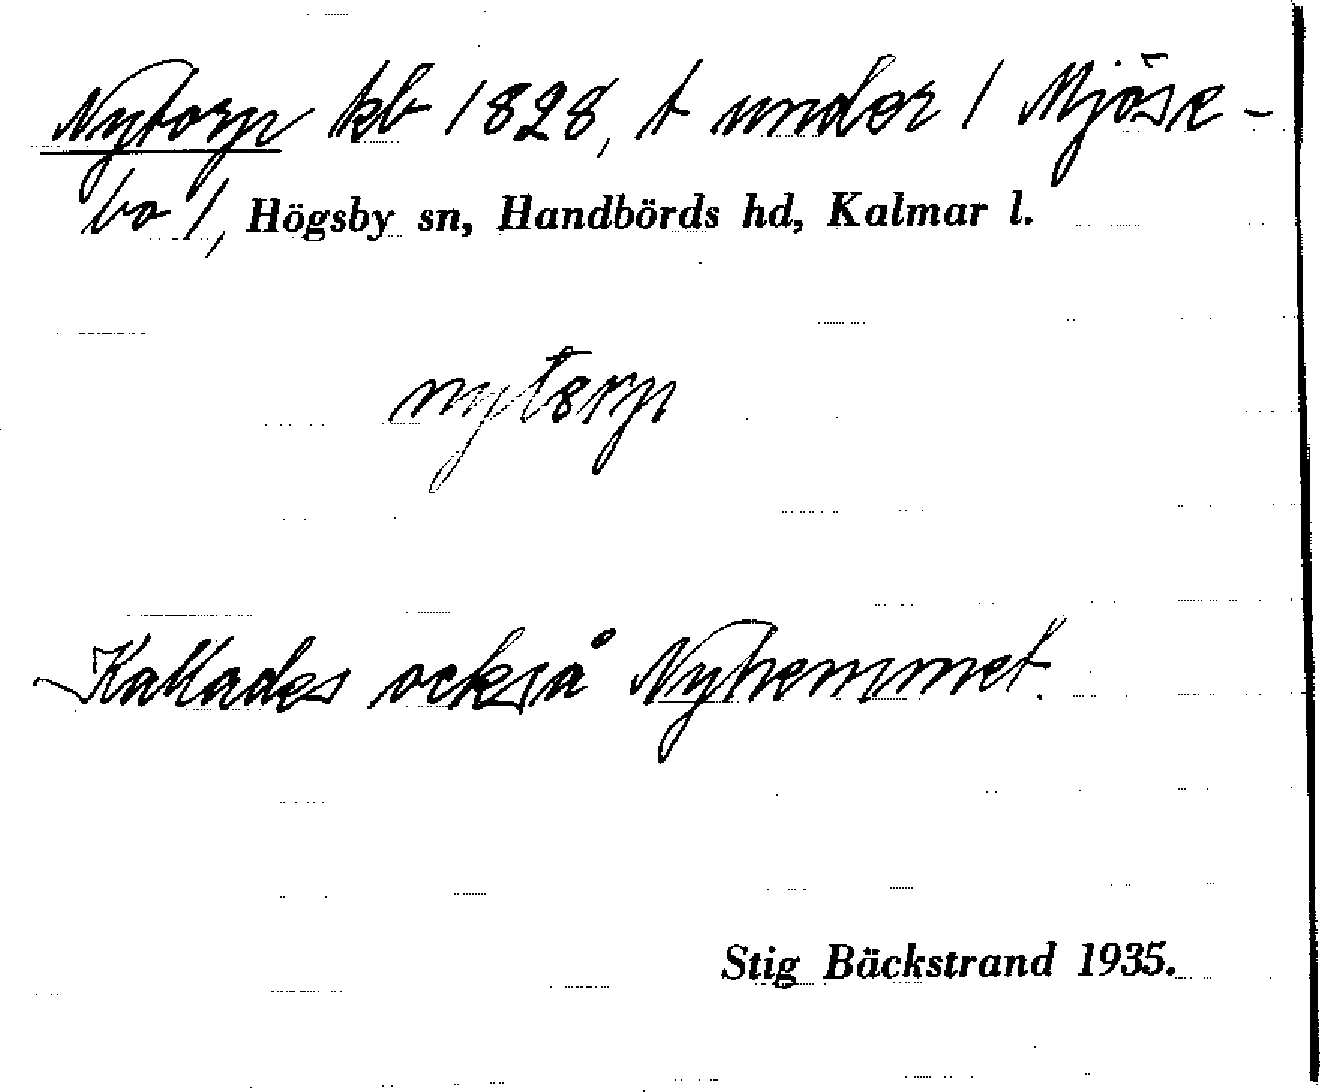 Nytorp kb 1828, t under / Mjöse-
bo /, Högsby sn, Handbörds hd, Kalmar l.
nytorp
Kallades också Nyhemmet.
Stig Bäckstrand 1935.